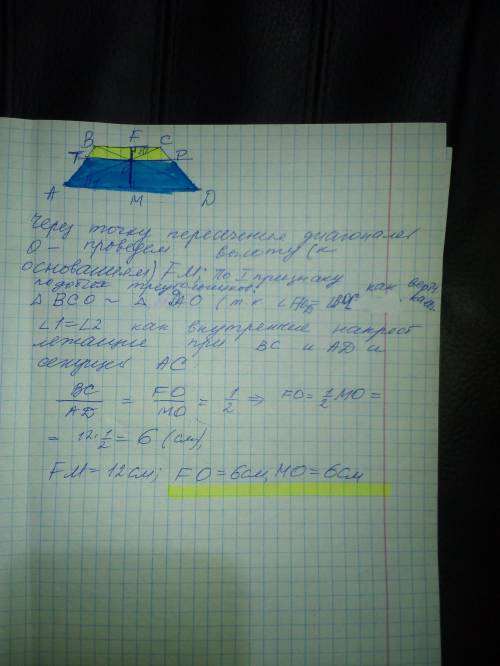 B F C
T P
A M D
Через точку пересечения диагоналей
O – проведем высоту (к
основаниям) FM; По I признаку
подобия треугольников
△ BCO ~ △ DAO (т.к. как верти
∠1=∠2 как внутренние накрест
лежащие при BC и AD и
секущей AC
BC/AD = FO/MO = 1/2 ⇒ FO = 1/2 MO =
= 12·1/2 = 6 (см),
FM = 12см; FO = 6см, MO = 6см